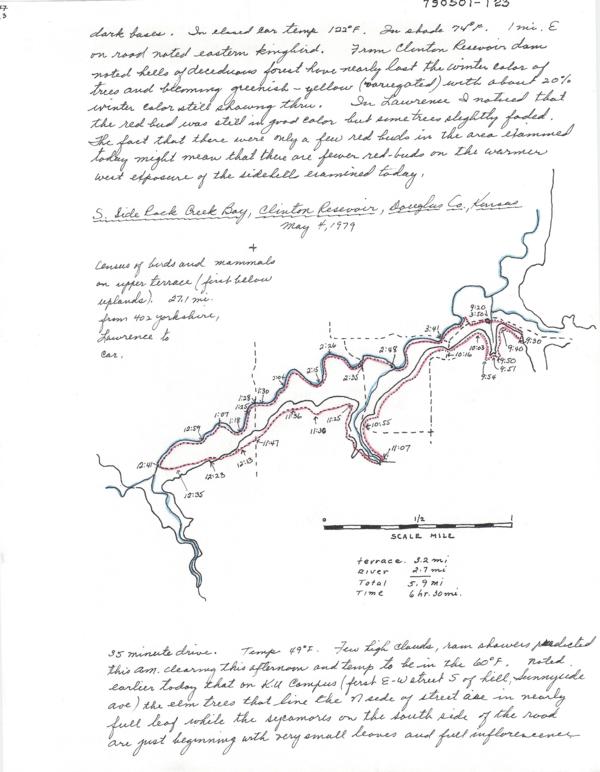 790501-123
dark bases. In closed car temp 122°F. In shade 74°F. 1 mi. E
on road noted eastern kingbird. From Clinton Resevoir dam
noted hells of deceduous forest have nearly lost the winter color of
trees and becoming greenish-yellow (variegated) with about 20%
winter color still showing thru. In Lawrence I noticed that
the red bud was still in good color but some trees slightly faded.
The fact that there were only a few red buds in the area examined
today might mean that there are fewer red-buds on the warmer
west exposure of the sidehell examined today.
S. Side Rock Creek Bay, Clinton Resevoir, Douglas Co., Kansas
May 4, 1979
Census of birds and mammals
on upper terrace (first below
uplands). 27.1 mi.
from 402 Yorkshire,
Lawrence to
car.
9:20
3:50
3:41
9:30
9:40
10:03
10:16
9:50
9:57
9:54
2:26
2:48
2:15
2:35
1:30
1:28
1:25
1:18
1:07
12:59
11:36
11:25
11:30
10:55
11:47
11:07
12:41
12:13
12:23
12:35
0 1/2 1
SCALE MILE
terrace 3.2 mi
River 2.7 mi
Total 5.9 mi
Time 6 hr. 30 min.
35 minute drive. Temp 49°F. Few high clouds, rain showers predicted
this am. clearing this afternoon and temp to be in the 60°F. Noted
earlier today that on K.U Campus (first E-W street S of hill, Sunnyside
ave) the elm trees that line the N side of street are in nearly
full leaf while the sycamores on the south side of the road
are just beginning with very small leaves and full inflorescence